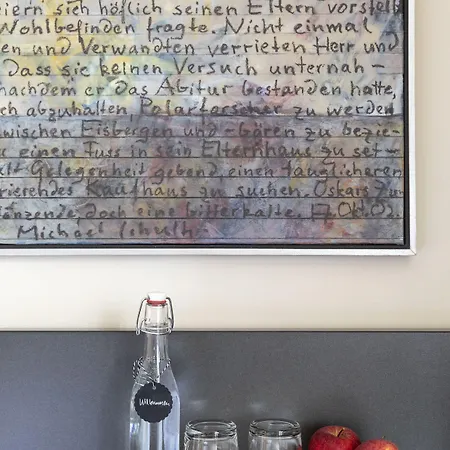 iern sich höflich seinen Eltern vorstell
Wohlbefinden fragte. Nicht einmal
en und Verwandten verrieten Herr und
dass sie keinen Versuch unternah-
nachdem er das Abitur bestanden hatte,
ch abzuhalten, Polarforscher zu werden
zwischen Eisbergen und -bären zu bezie-
r einen Fuss in sein Elternhaus zu set-
alt Gelegenheit gebend einen tauglicheren
rierendes Kaufhaus zu suchen. Oskars Zun
länzende, doch eine bitterkalte. 17. Okt. 02.
Michael Schulh
Willkommen